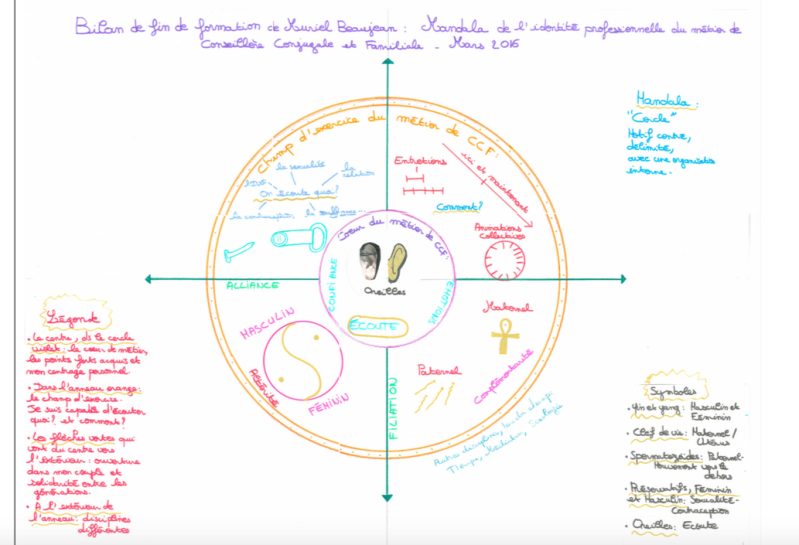 Bilan de fin de formation de Muriel Beaujean : Mandala de l'identité professionnelle du métier de
Conseillère Conjugale et Familiale - Mars 2016
Mandala :
"Cercle"
Motif centré,
délimité,
avec une organisation
interne.
Champ d'exercice du métier de CCF:
la sexualité
la relation
On écoute quoi?
la contraception
la souffrance
Entretiens
ici et maintenant
Comment?
Animations
Collectives
Coeur du métier de CCF:
CONFIANCE
EMOTIONS
Oreilles
ECOUTE
ALLIANCE
FILIATION
MASCULIN
FÉMININ
Altérité
Maternel
Paternel
Complémentarité
Autres disciplines, hors du champ:
Thérapie, Médiation, Sexologie
Légende
• Le centre, de le cercle
violet: le coeur de métier,
les points forts acquis et
mon centrage personnel.
• Dans l'anneau orange:
le champ d'exercice.
Je suis capable d'écouter
quoi? et comment?
• Les flèches vertes qui
vont du centre vers
l'extérieur: ouverture
dans mon couple et
solidarité entre les
générations.
• A l'extérieur de
l'anneau: disciplines
différentes
Symboles
• Yin et yang: Masculin et
Féminin
• Clef de vie: Maternel/
Utérus
• Spermatozoïdes: Paternel-
Mouvement vers le
dehors
• Préservatifs, Féminin
et Masculin: Sexualité-
Contraception
• Oreilles: Ecoute